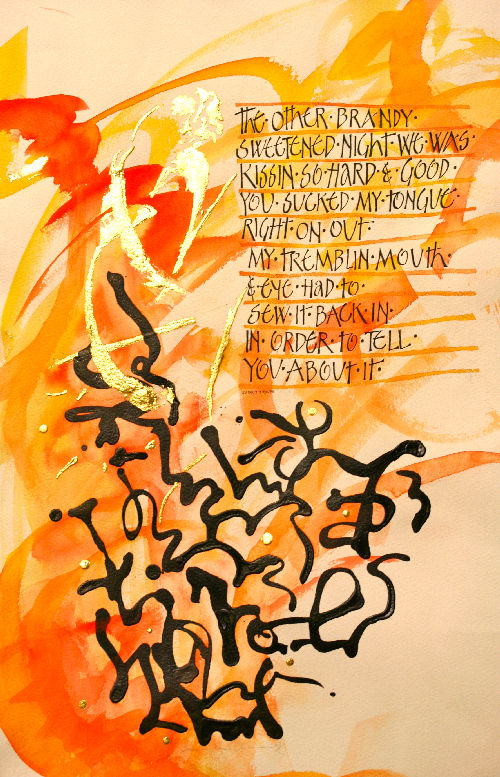 THE·OTHER·BRANDY·
SWEETENED·NIGHT·WE·WAS·
KISSIN·SO·HARD·&·GOOD·
YOU·SUCKED·MY·TONGUE·
RIGHT·ON·OUT·
MY·TREMBLIN·MOUTH·
&·EYE·HAD·TO·
SEW·IT·BACK·IN·
IN·ORDER·TO·TELL·
YOU·ABOUT·IT·